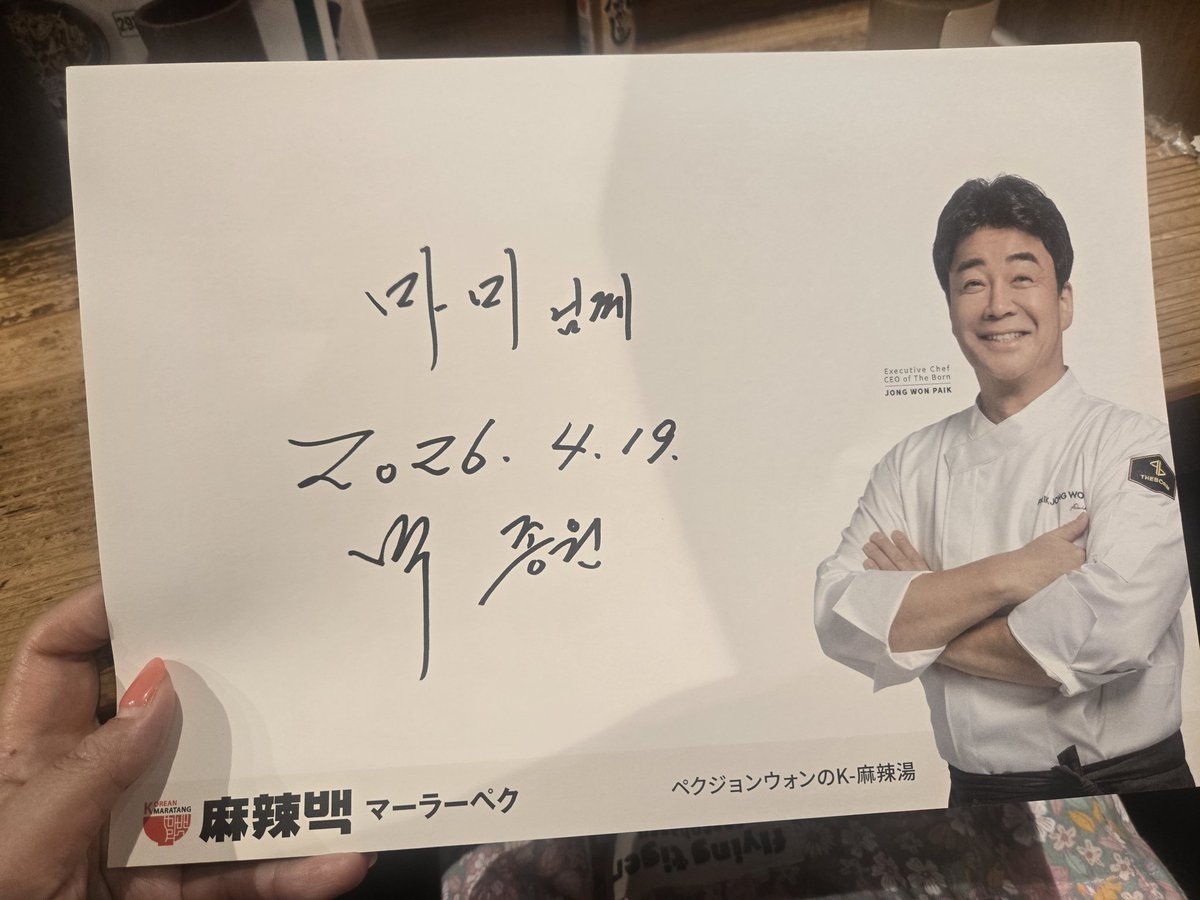 마미 님께
2026. 4. 19.
백 종원
Executive Chef
CEO of The Born
JONG WON PAIK
PAIK, JONG WO
THEBORN
KOREAN
MARATANG
麻辣백 マーラーペク
ペクジョンウォンのK-麻辣湯
flying tiger
29